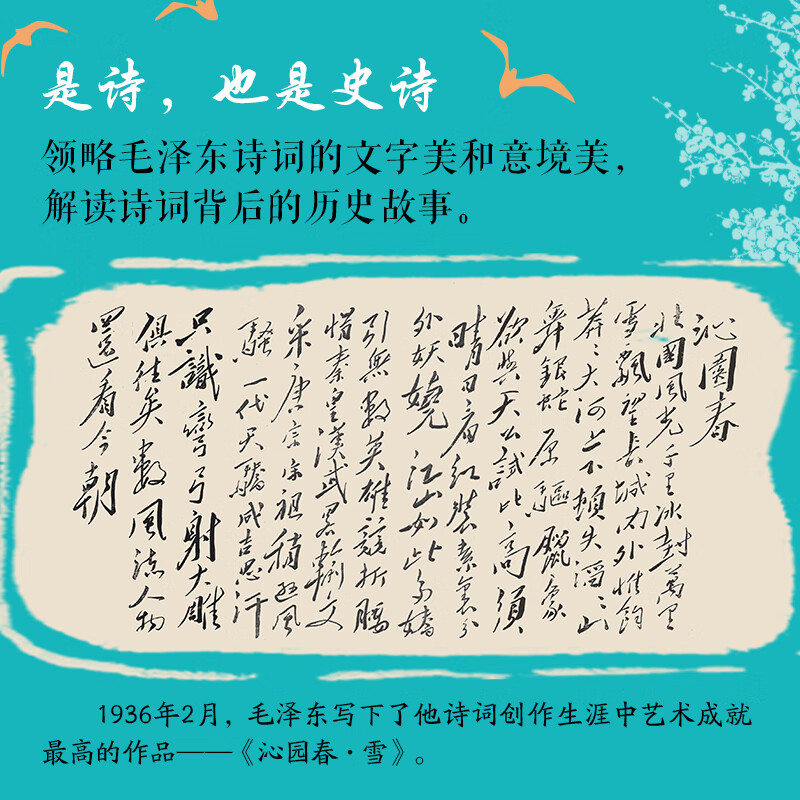 是诗，也是史诗
领略毛泽东诗词的文字美和意境美，
解读诗词背后的历史故事。
沁園春
北國風光千里冰封萬里
雪飄望長城内外惟餘
莽〻大河上下頓失滔〻山
舞銀蛇原驅臘象
欲與天公試比高須
晴日看紅裝素裹分
外妖嬈江山如此多嬌
引無數英雄競折腰
惜秦皇漢武略輸文
采唐宗宋祖稍遜風
騷一代天驕成吉思汗
只識彎弓射大雕
俱往矣數風流人物
還看今朝
1936年2月，毛泽东写下了他诗词创作生涯中艺术成就
最高的作品——《沁园春·雪》。